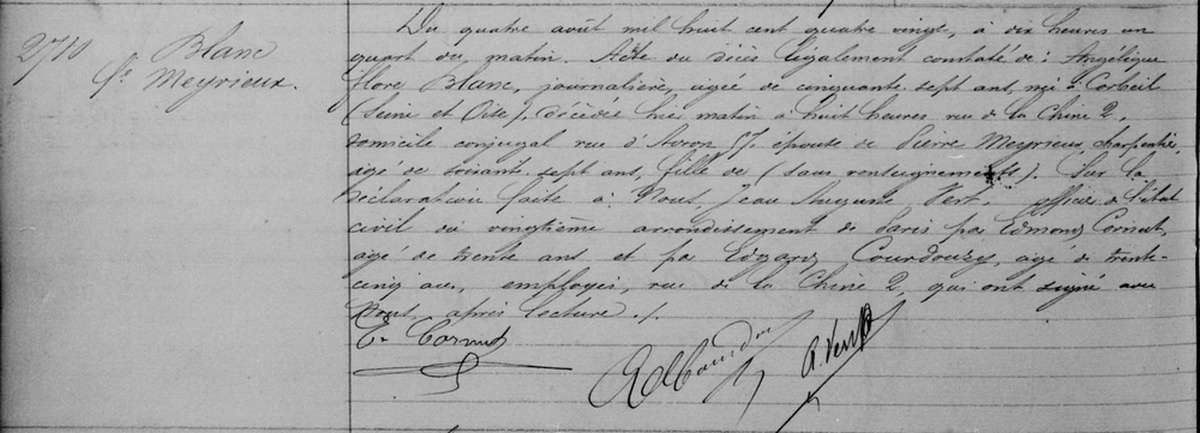 2710
Blanc
Fe Meyrieux.
Du quatre août mil huit cent quatre vingt, à dix heures un
quart du matin. Acte de décès légalement constaté de : Angélique
Flore Blanc, journalière, agée de cinquante sept ans, née à Corbeil
(Seine et Oise), décédée hier matin à huit heures rue de la Chine 2,
domicile conjugal rue d'Avron 57. épouse de Pierre Meyrieux, charpentier,
agé de soixante sept ans, fille de (sans renseignements). Sur la
déclaration faite à Nous, Jean Auguste Vert, officier de l'état
civil du vingtième arrondissement de Paris par Edmond Cornut,
agé de trente ans et par Edgard Courdouzy, agé de trente-
cinq ans, employés, rue de la Chine 2, qui ont signé avec
Nous, après lecture ./.
E. Cornut
A. Vert